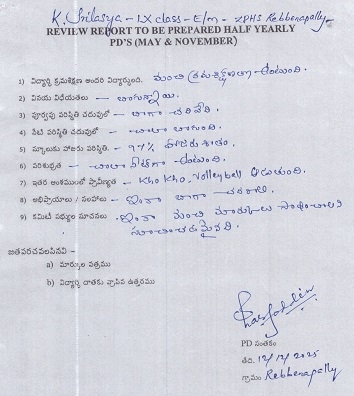 K. Srilasya - IX class - E/m - ZPHS Rebbenapally -
REVIEW REPORT TO BE PREPARED HALF YEARLY
PD'S (MAY & NOVEMBER)
1) విద్యార్థి క్రమశిక్షణ అందరి విద్యార్థులది. మంచి క్రమశిక్షణగా ఉంటుంది.
2) వినయ విధేయతలు - బాగున్నాయి.
3) పూర్వపు పరిస్థితి చదువులో - బాగా చదివేది.
4) నేటి పరిస్థితి చదువులో - చాలా బాగుంది.
5) స్కూలుకు హాజరు పరిస్థితి. - 97% హాజరు శాతం.
6) పరిశుభ్రత - చాలా నీట్‌గా ఉంటుంది.
7) ఇతర అంశములలో ప్రావీణ్యత - Kho Kho, Volleyball ఆడుతుంది.
8) అభిప్రాయాలు / సలహాలు - ఇంకా బాగా చదవాలి
9) కమిటీ సభ్యుల సూచనలు - ఇంకా మంచి మార్కులు సాధించాలని
సూచించడమైనది.
జతపరచవలసినవి -
a) మార్కుల పత్రము
b) విద్యార్థి దాతకు వ్రాసిన ఉత్తరము
PD సంతకం
తేది. 12/12/2025
గ్రామం Rebbenapally